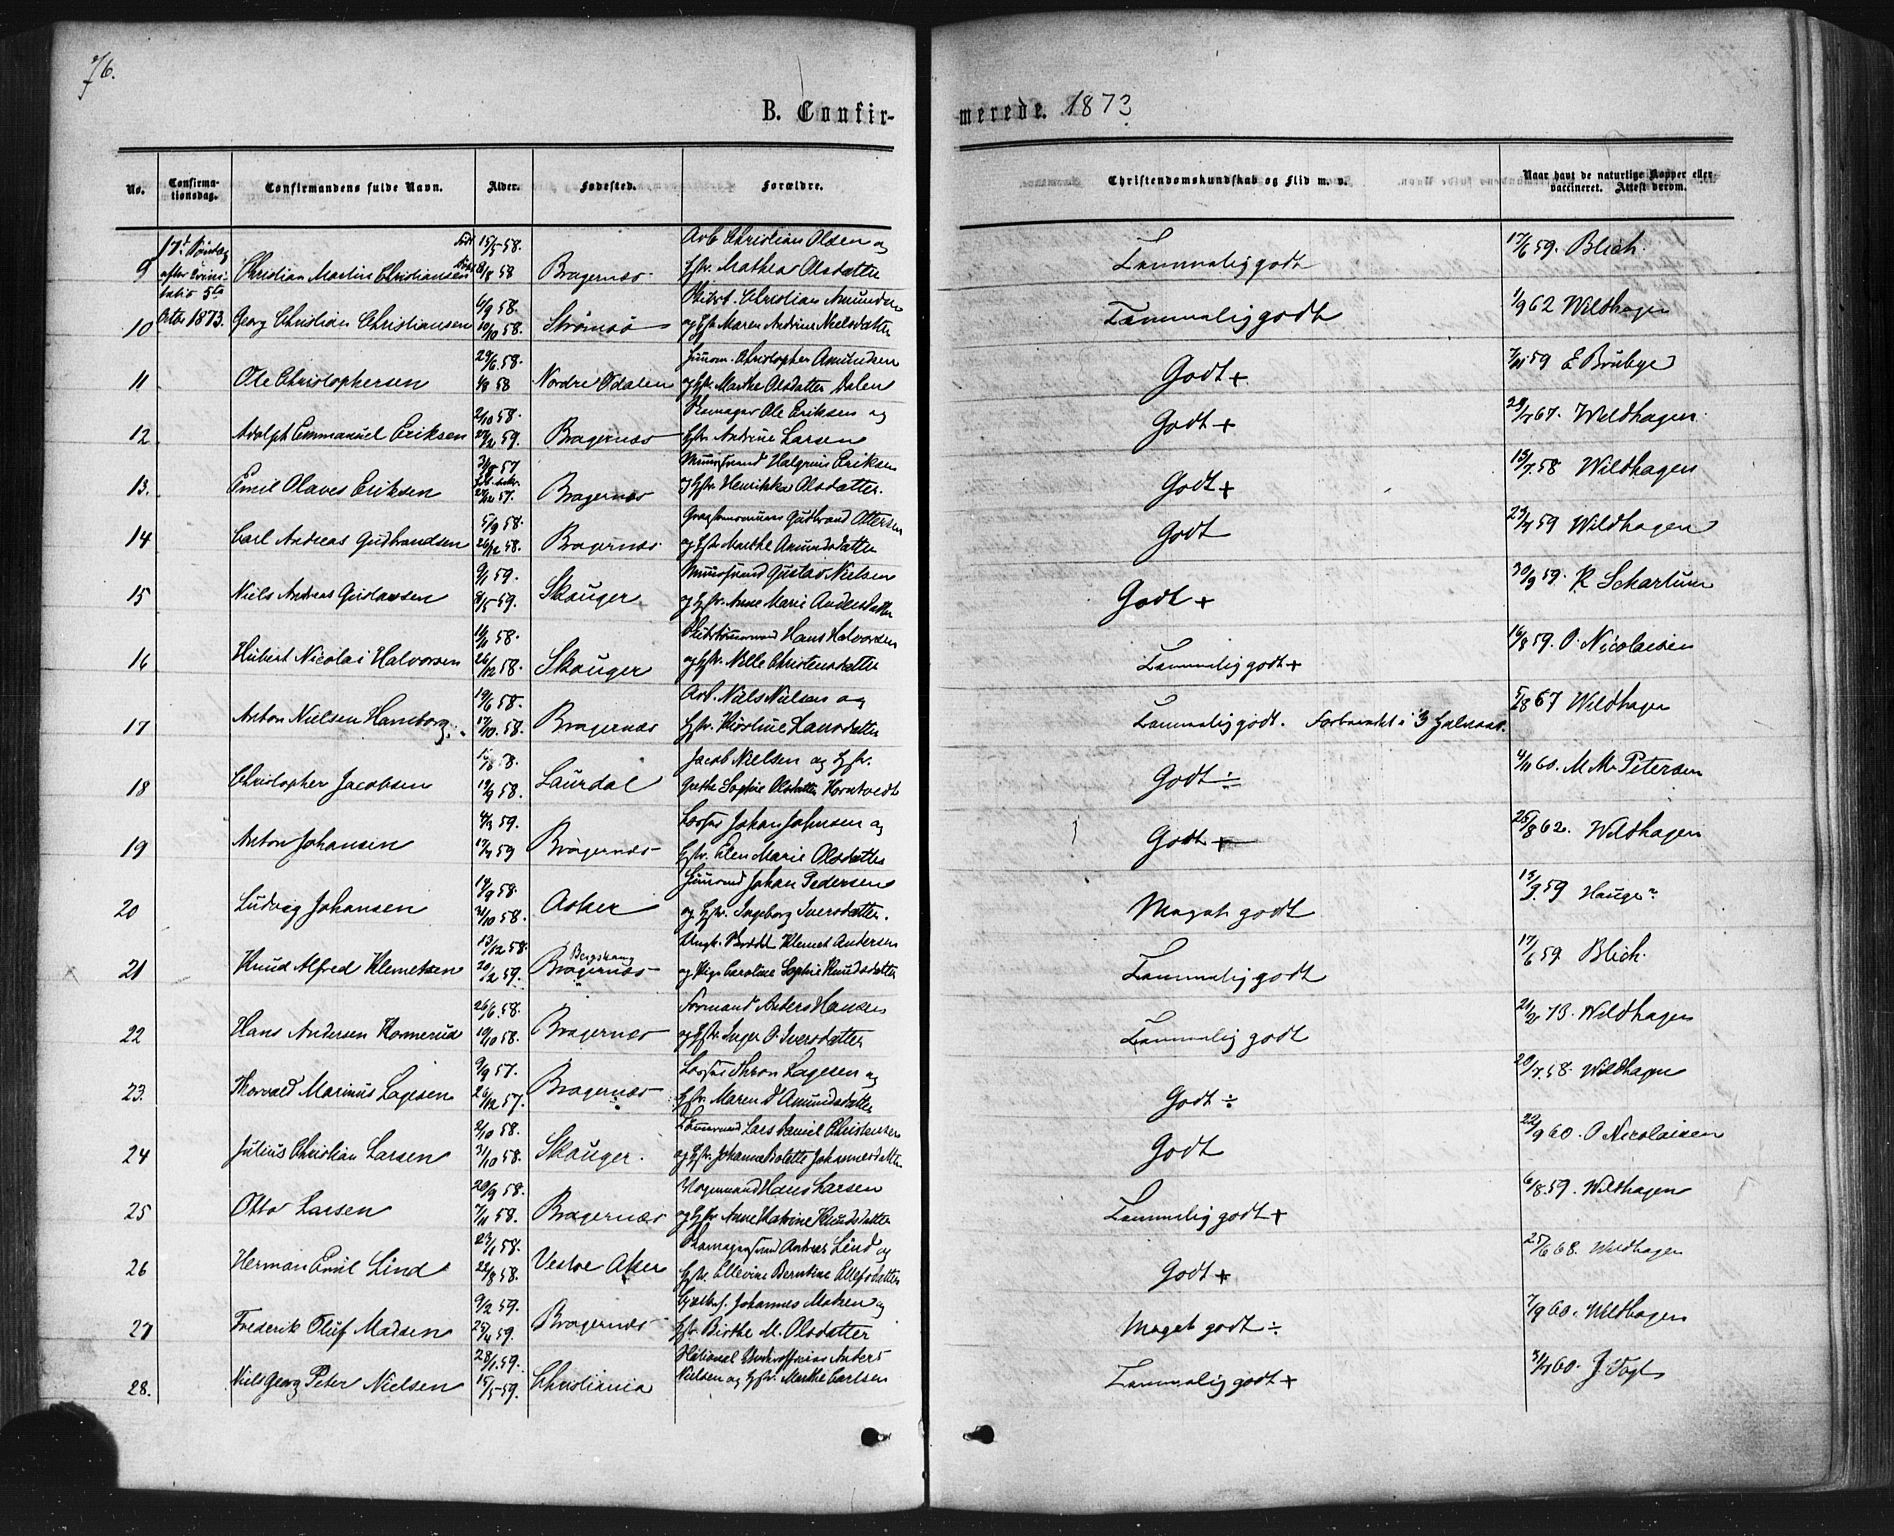 76.
B. Confirmerede. 1873
No. Confirmationsdag. Confirmandens fulde Navn. Alder. Fødested. Forældre. Christendomskundskab og Flid m. v. Naar havt de naturlige Kopper eller vaccineret. Attest derom.
17d Søndag efter Trinitatis 5te Octbr 1873.
9 Christian Martin Christiansen Født 15/5 58. 8/8 58 Bragernæs Arb. Christian Olsen og Hstr. Mathea Olsdatter Temmelig godt 17/6 59. Blich.
10 Georg Christian Christiansen 6/9 58. 10/10 58. Strømsø Christian Amundsen og Hstr. Maren Andrine Nielsdatter Temmelig godt 1/9 62 Wildhagen
11 Ole Christophersen 29/6 58. Nordre Odalen Christopher Amundsen og Hstr. Marthe Olsdatter Dalen Godt + 7/11 59 E Brubye
12. Adolph Emmanuel Eriksen 2/10 58. 27/2 59. Bragernæs Ole Eriksen og Hstr. Andrine Larsen Godt + 29/7 67. Wildhagen.
13. Emil Olaves Eriksen 57. 57. Bragernæs Halgrim Eriksen og Hstr. Henrikke Olsdatter. Godt + 15/7 58 Wildhagen
14 Carl Andreas Gudbrandsen 5/9 58. 26/12 58. Bragernæs. Gudbrand Ottersen og Hstr. Marthe Amundsdatter Godt 23/7 59 Wildhagen
15 Niels Andreas Gustavsen 9/1 59. 8/5 59. Skouger Gustav Nielsen og Hstr. Anne Marie Andersdatter Godt + 30/9 59. R Schartum
16 Hubert Nicolai Halvorsen 58. 26/12 58. Skouger Hans Halvorsen og Hstr. Nille Christensdatter Temmelig godt + 14/8 59. O. Nicolaisen
17 Anton Nielsen Hamborg. 19/6 58. 17/10 58. Bragernæs Arb. Niels Nielsen og Hstr. Karoline Hansdatter Temmelig godt. Forberedt i 3 Halvaar. 5/8 67 Wildhagen
18 Christopher Jacobsen 58. 19/9 58. Laurdal Jacob Nielsen og Hstr. Grethe Sophie Olsdatter Horntvedt Godt ÷ 4/11 60. M M. Petersen
19 Anton Johansen 4/3 59. 17/4 59 Bragernæs Johan Johnsen og Hstr. Elen Marie Olsdatter Godt + 25/8 62. Wildhagen
20 Ludvig Johansen 14/9 58. 31/10 58. Asker Johan Pedersen og Hstr. Ingeborg Iversdatter. Meget godt 15/9 59 Hauge
21 Knud Alfred Klemetsen 13/12 58. 20/2 59. Bragernæs Bergskoug Ungk. Klemet Andersen og Pige Caroline Sophie Knudsdatter Temmelig godt 17/6 59 Blich.
22 Hans Andersen Konnerud 26/6 58. 19/10 58. Bragernæs Anders Hansen og Hstr. Inger O. Iversdatter Temmelig godt 21/2 73. Wildhagen
23. Thorvald Marinus Lagesen 9/9 57. 26/12 57. Bragernæs Thron Lagesen og Hstr. Maren Amundsdatter Godt ÷ 20/7 58. Wildhagen
24 Julius Christian Larsen 2/10 58. 31/10 58. Skouger. Lars Daniel Christensen og Hstr. Johannesdatter Godt 22/9 60. O Nicolaisen
25 Otto Larsen 20/9 58. 7/11 58. Bragernæs Vognmand Hans Larsen og Hstr. Anne Katrine Knudsdatter Temmelig godt + 6/8 59. Wildhagen
26 Herman Emil Lind 23/1 58. 22/8 58. Vestre Aker Andreas Lind og Hstr. Ellevine Berntine Ellefsdatter Godt + 25/6 68. Wildhagen
27 Frederik Oluf Madsen 9/2 59. 25/4 59. Bragernæs Johannes Madsen og Hstr. Birthe M. Olsdatter Meget godt ÷ 7/9 60. Wildhagen
28. Niels Georg Peter Nielsen 28/1 59. 15/5 59. Christiania National Underofficier Anders Nielsen og Hstr. Marthe Carlsen Temmelig godt + 60. J. Vogt